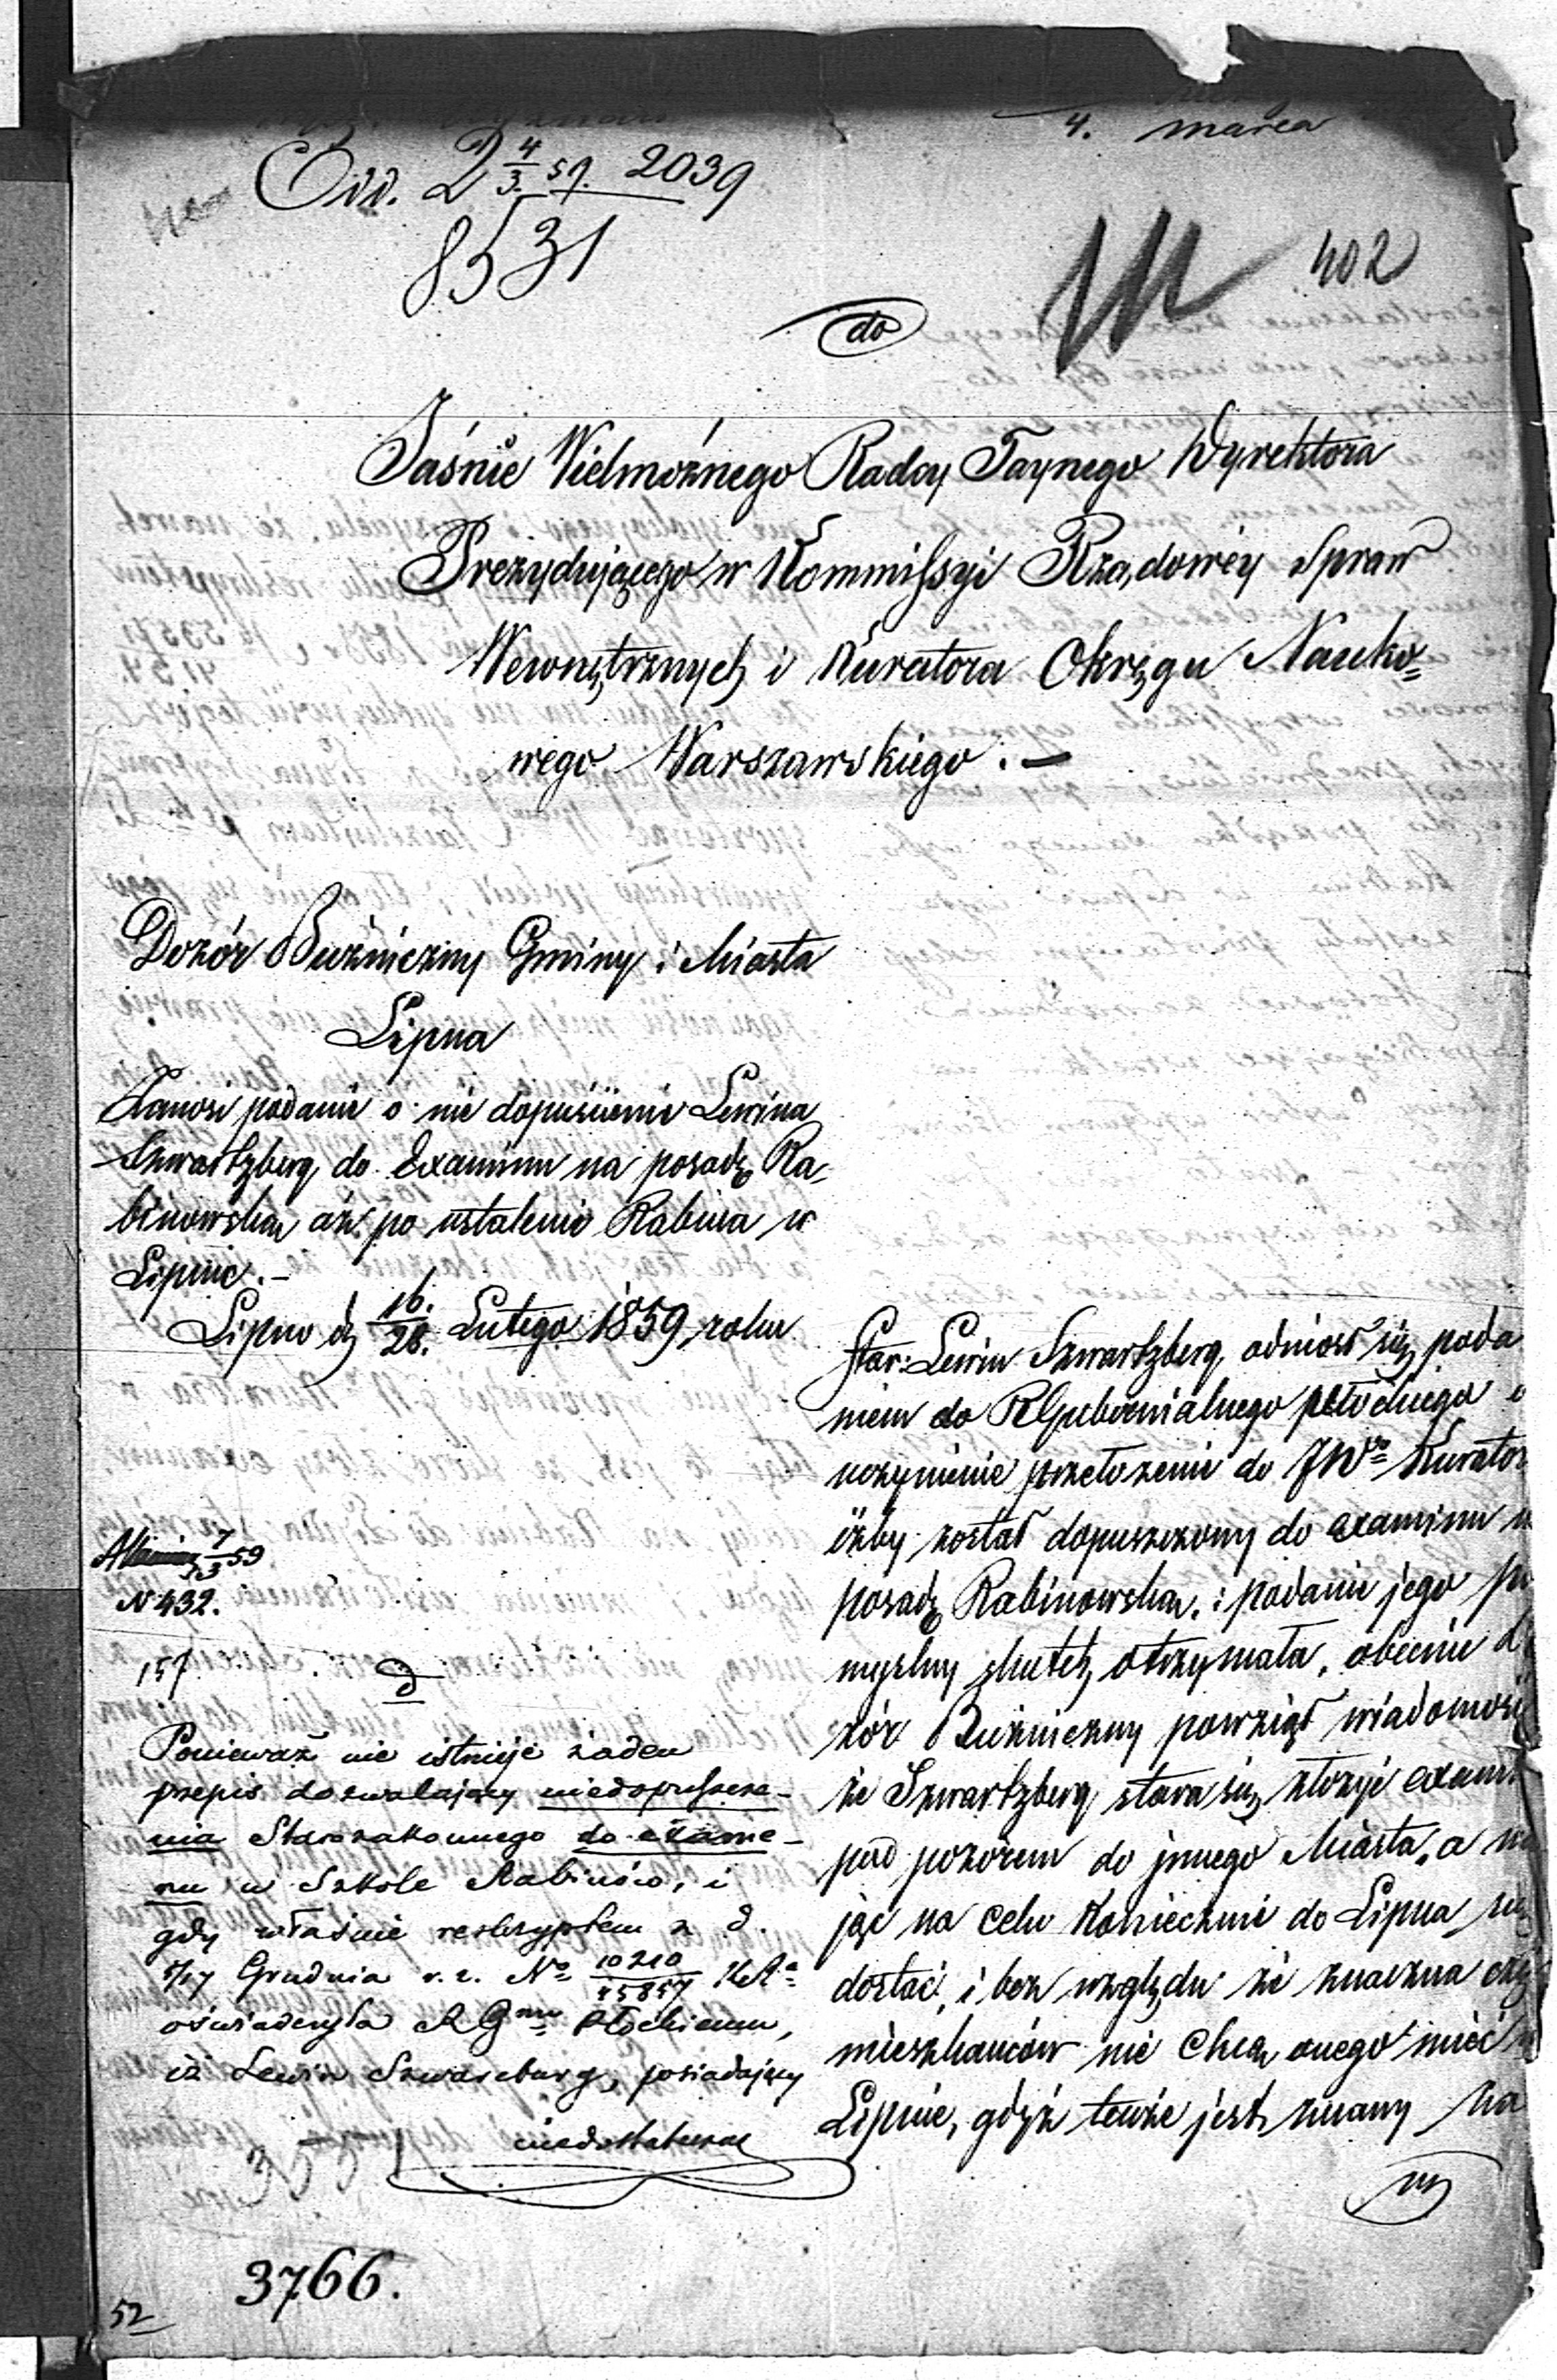 4. marca
Odd. 2 4/3. 59. 2039
8531
402
do
Jaśnie Wielmożnego Radcy Taynego Dyrektora
Prezydującego w Kommissyi Rządowéy Spraw
Wewnętrznych i Kuratora Okręgu Nauko=
wego Warszawskiego. —
Dozór Bużniczny Gminy i Miasta
Lipna
Zanosi podanie o nie dopuszczenie Lewina
Szwartzberg do Examinu na posadę Ra-
binowską aż po ustalenie Rabina w
Lipnie. –
Lipno d. 16./28. Lutego 1859 roku
Star: Lewin Szwartzberg odniosł się poda
niem do RGubernialnego płockiego o
uczynienie przełożenie do JWo Kurator
iżby został dopuszczony do examinu n
posadę Rabinowską, i podanie jego po
myslny skutek otrzymała, obecnie d
zór Bużniczny powziął wiadomość
że Szwartzberg stara się złożyć exami
pod pozorem do innego Miasta, a m
jąc na celu koniecznie do Lipna się
dostać, i bez względu że znaczna czę
mieszkańców nie chcą onego mieć w
Lipnie, gdyż tenże jest znany na
7/3 59
N 432.
157
d
Ponieważ nie istnieje żaden
przepis dozwalający niedopuszcze-
nia Starozakonnego do exame-
nu w Szkole Rabinów, i
gdy właśnie reskryptem z d.
5/17 Grudnia r. z. No 10210/15857
oświadczyła RGmu Płockiemu,
iż Lewin Szwarcburg, posiadający
niedostateczne
3766.
52